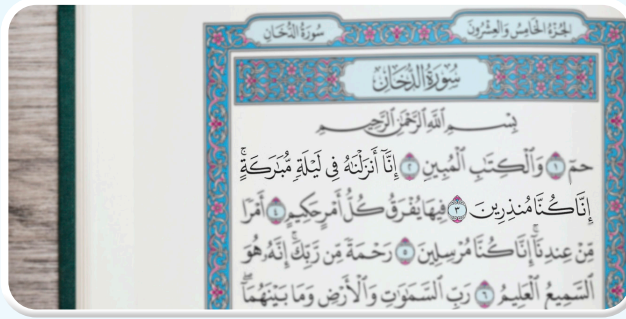 الجزء الخامس والعشرون
سورة الدخان
سُورَةُ الدُّخَانِ
بِسْمِ اللَّهِ الرَّحْمَٰنِ الرَّحِيمِ
حمٓ ١ وَالْكِتَٰبِ الْمُبِينِ ٢ إِنَّآ أَنزَلْنَٰهُ فِى لَيْلَةٍ مُّبَٰرَكَةٍۚ
إِنَّا كُنَّا مُنذِرِينَ ٣ فِيهَا يُفْرَقُ كُلُّ أَمْرٍ حَكِيمٍ ٤ أَمْرًا
مِّنْ عِندِنَآۚ إِنَّا كُنَّا مُرْسِلِينَ ٥ رَحْمَةً مِّن رَّبِّكَۚ إِنَّهُۥ هُوَ
السَّمِيعُ الْعَلِيمُ ٦ رَبِّ السَّمَٰوَٰتِ وَالْأَرْضِ وَمَا بَيْنَهُمَآۖ